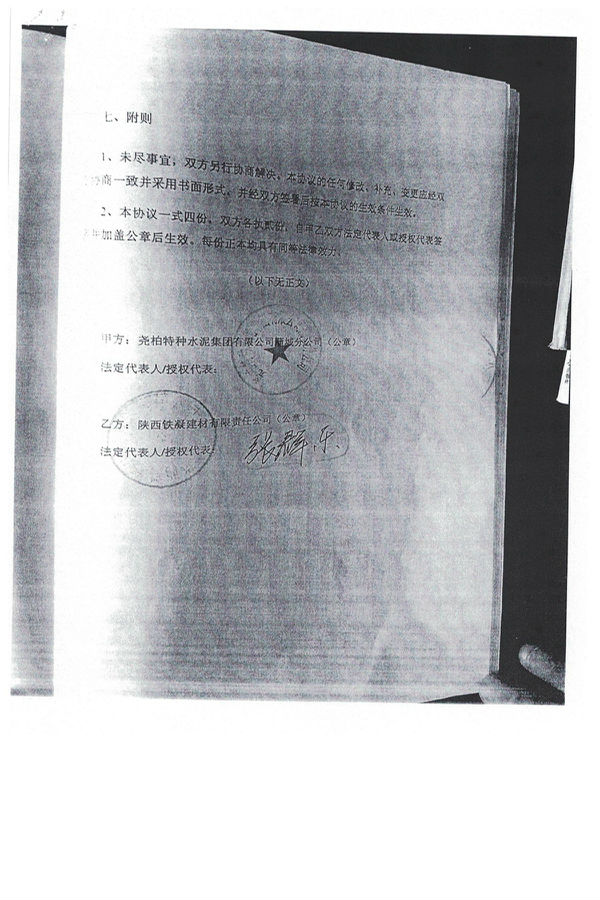 七、附则
1、未尽事宜，双方另行协商解决。本协议的任何修改、补充、变更应经双
协商一致并采用书面形式，并经双方签署后按本协议的生效条件生效。
2、本协议一式四份，双方各执贰份，自甲乙双方法定代表人或授权代表签
加盖公章后生效。每份正本均具有同等法律效力。
（以下无正文）
甲方：尧柏特种水泥集团有限公司蒲城分公司（公章）
法定代表人/授权代表：
乙方：陕西铁凝建材有限责任公司（公章）
法定代表人/授权代表：